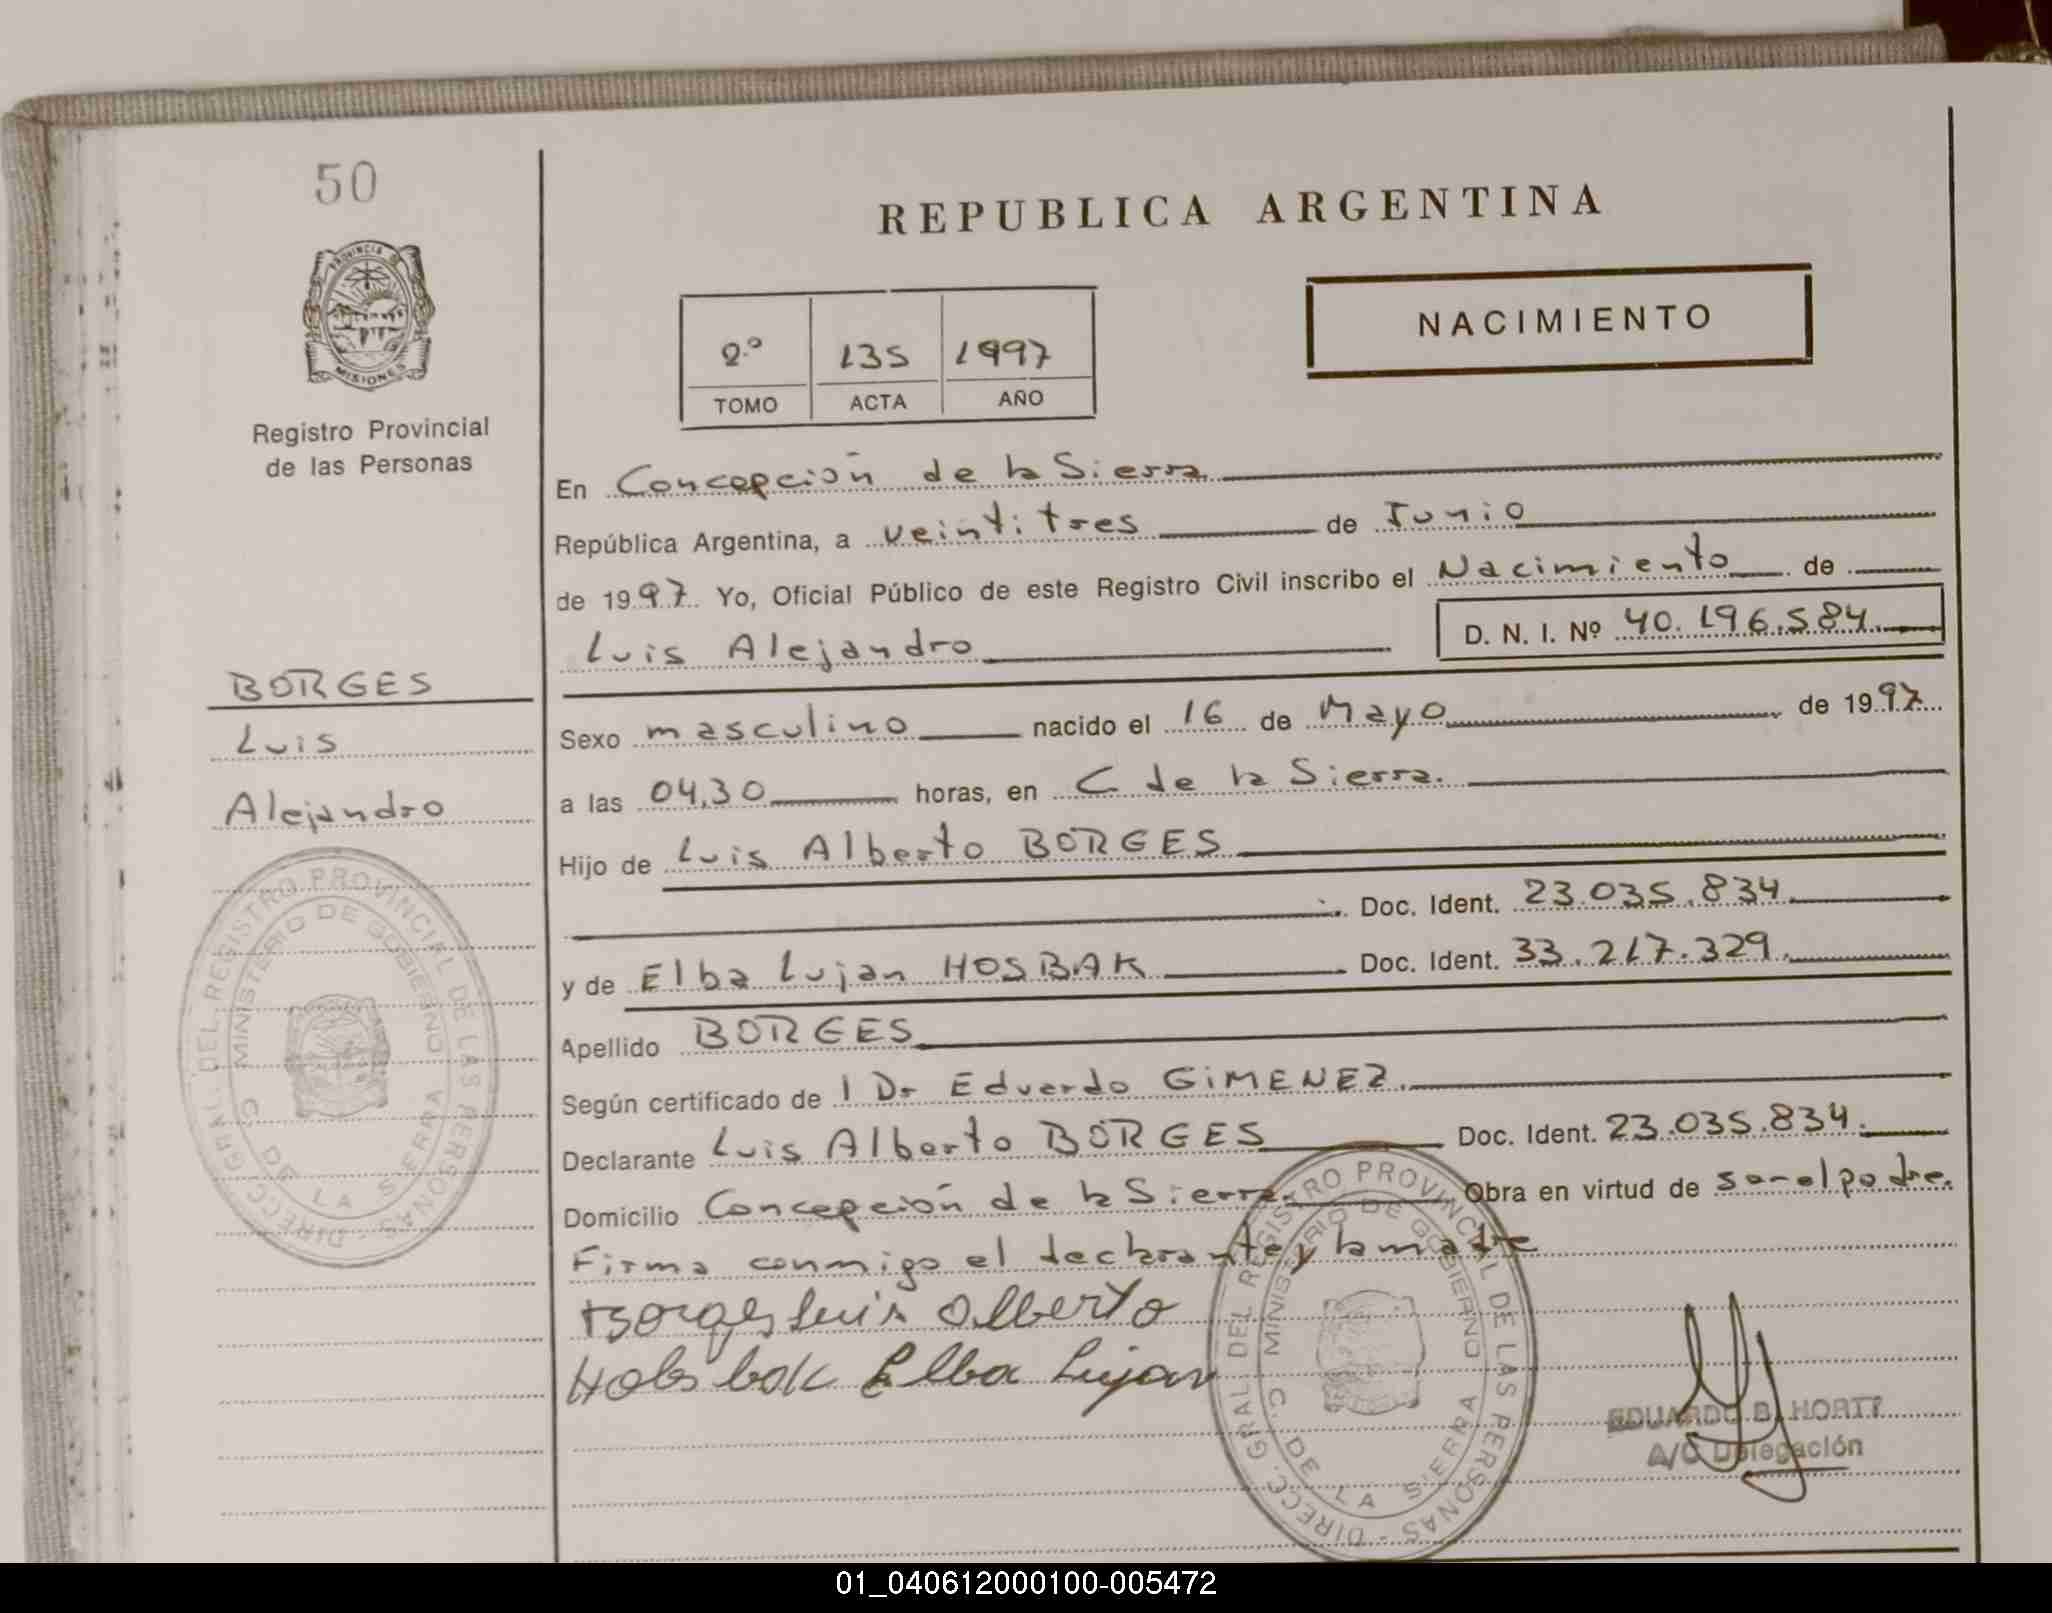 50
PROVINCIA DE
MISIONES
Registro Provincial
de las Personas
BORGES
Luis
Alejandro
DIRECC. GRAL. DEL REGISTRO PROVINCIAL DE LAS PERSONAS
MINISTERIO DE GOBIERNO
C. DE LA SIERRA
REPUBLICA ARGENTINA
2.º 135 1997
TOMO ACTA AÑO
NACIMIENTO
En Concepción de la Sierra
República Argentina, a veintitres de Junio
de 1997 Yo, Oficial Público de este Registro Civil inscribo el Nacimiento de
Luis Alejandro D. N. I. Nº 40.196.584.
Sexo masculino nacido el 16 de Mayo de 1997
a las 04,30 horas, en C de la Sierra.
Hijo de Luis Alberto BORGES
Doc. Ident. 23.035.834
y de Elba Lujan HOSBAK Doc. Ident. 33.217.329.
Apellido BORGES
Según certificado de l Dr Eduardo GIMENEZ.
Declarante Luis Alberto BORGES Doc. Ident. 23.035.834.
Domicilio Concepción de la Sierra. Obra en virtud de ser el padre.
Firma conmigo el declarante y la madre
Borges Luis Alberto
Hobsbak Elba Lujan
DIRECC. GRAL. DEL REGISTRO PROVINCIAL DE LAS PERSONAS
MINISTERIO DE GOBIERNO
C. DE LA SIERRA
EDUARDO B. HORTT
A/C Delegación
01_040612000100-005472